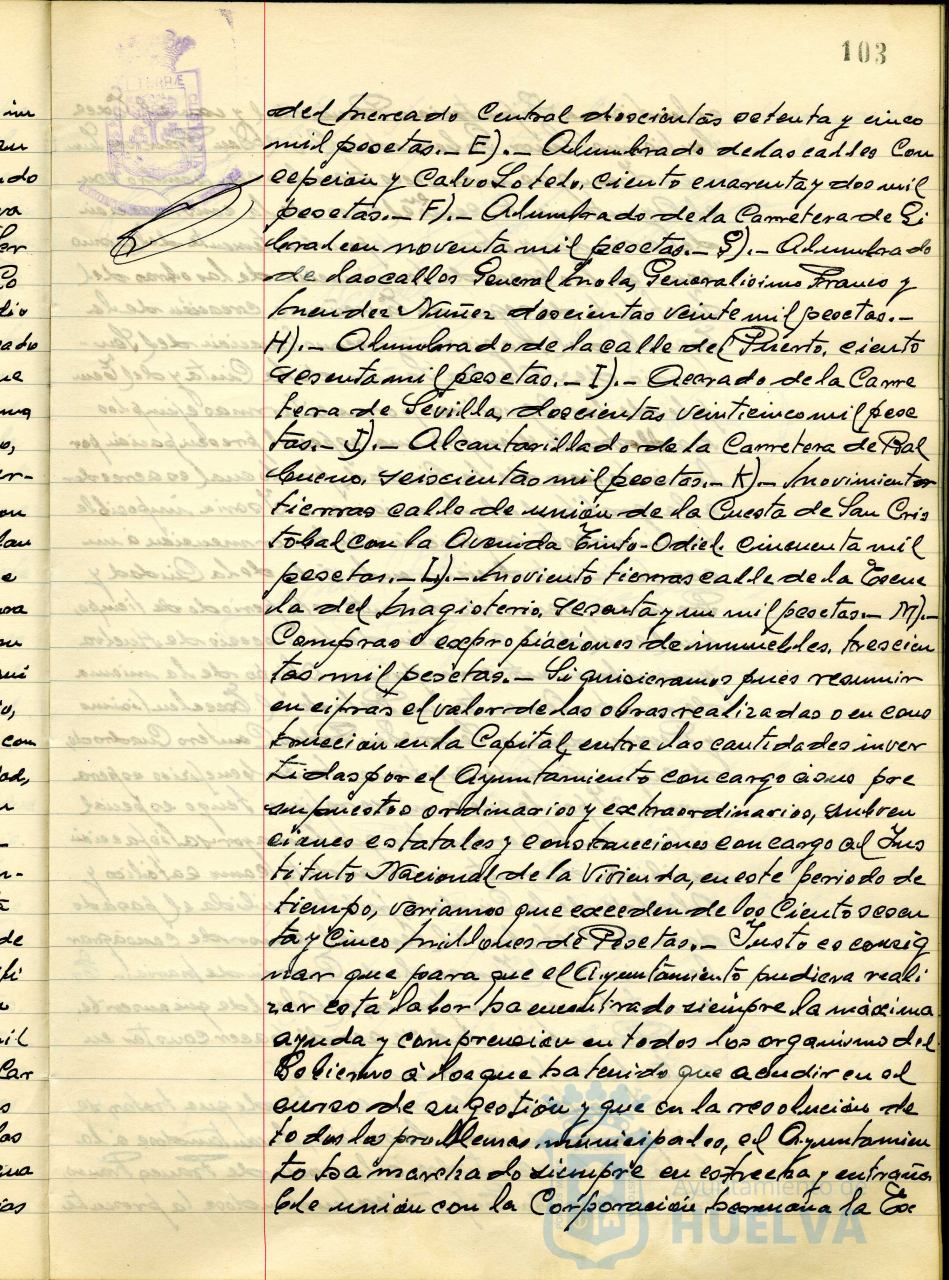 103
del Mercado Central doscientas setenta y cinco
mil pesetas.- E).- Alumbrado de las calles Con
cepción y Calvo Sotelo, ciento cuarenta y dos mil
pesetas.- F).- Alumbrado de la Carretera de Gi
braleon noventa mil pesetas.- G).- Alumbrado
de las calles General Mola, Generalisimo Franco y
Mendez Nuñez doscientas veinte mil pesetas.-
H).- Alumbrado de la calle del Puerto, ciento
sesenta mil pesetas.- I).- Acerado de la Carre
tera de Sevilla, doscientas veinticinco mil pese
tas.- J).- Alcantarillado de la Carretera de Bal
bueno, seiscientas mil pesetas.- K).- Movimientos
tierras calle de unión de la Cuesta de San Cris
tobal con la Avenida Tinto-Odiel. cincuenta mil
pesetas.- L).- Moviento tierras calle de la Escue
la del Magisterio, sesenta y un mil pesetas.- M).-
Compras o expropiaciones de inmuebles, trescien
tas mil pesetas.- Si quisieramos pues resumir
en cifras el valor de las obras realizadas o en cons
trucción en la Capital, entre las cantidades inver
tidas por el Ayuntamiento con cargo a sus pre
supuestos ordinarios y extraordinarios, subven
ciones estatales y construcciones con cargo al Ins
tituto Nacional de la Vivienda, en este periodo de
tiempo, veriamos que exceden de los Ciento sesen
ta y Cinco Millones de Pesetas.- Justo es consig
nar que para que el Ayuntamiento pudiera reali
zar esta labor ha encontrado siempre la máxima
ayuda y comprensión en todos los organismo del
Gobierno a los que ha tenido que acudir en el
curso de su gestión y que en la resolución de
todos los problemas municipales, el Ayuntamien
to ha marchado siempre en estrecha y entraña
ble unión con la Corporación hermana la Ex
Ayuntamiento de
HUELVA